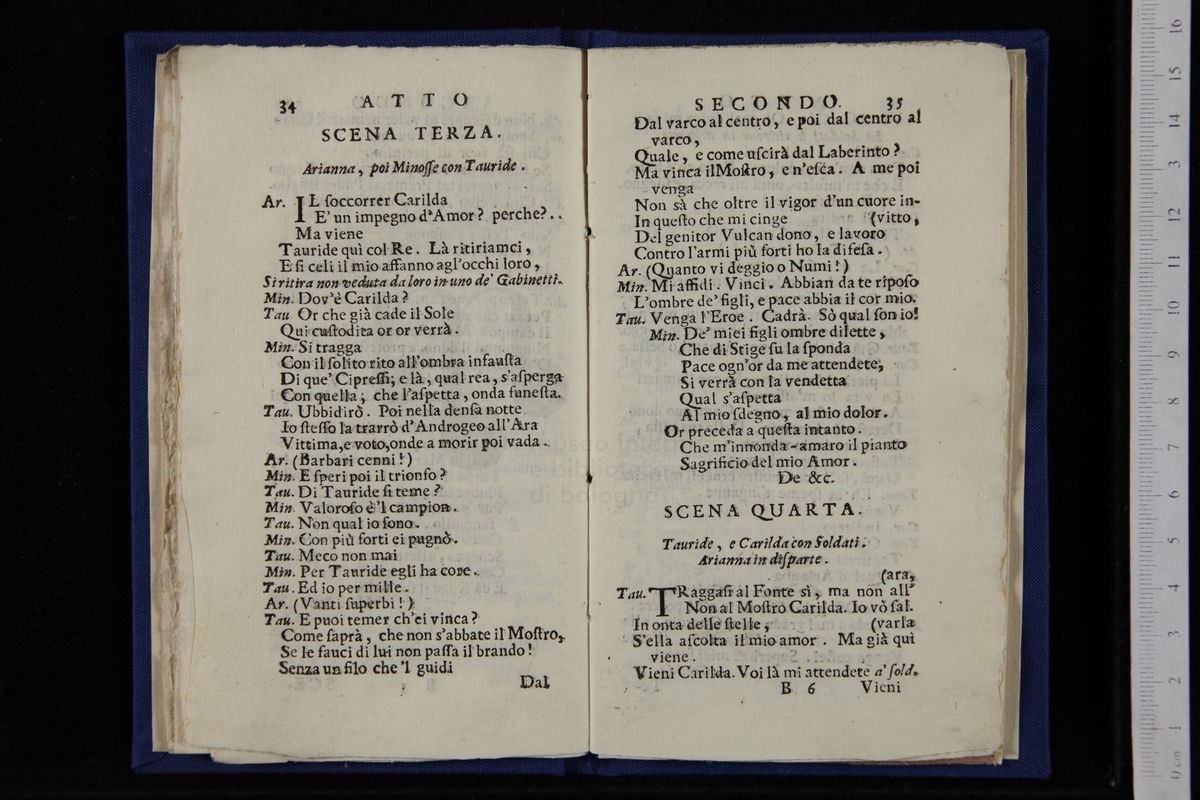 34 ATTO
SCENA TERZA.
Arianna, poi Minosse con Tauride.
Ar. IL soccorrer Carilda
E' un impegno d'Amor? perche?..
Ma viene
Tauride quì col Re. Là ritiriamci,
E si celi il mio affanno agl'occhi loro,
Si ritira non veduta da loro in uno de' Gabinetti.
Min. Dov'è Carilda?
Tau Or che già cade il Sole
Qui custodita or or verrà.
Min. Si tragga
Con il solito rito all'ombra infausta
Di que' Cipressi; e là, qual rea, s'asperga
Con quella, che l'aspetta, onda funesta.
Tau. Ubbidirò. Poi nella densa notte
Io stesso la trarrò d'Androgeo all'Ara
Vittima, e voto, onde a morir poi vada.
Ar. (Barbari cenni!)
Min. E speri poi il trionfo?
Tau. Di Tauride si teme?
Min. Valoroso è'l campion.
Tau. Non qual io sono.
Min. Con più forti ei pugnò.
Tau. Meco non mai
Min. Per Tauride egli ha core.
Tau. Ed io per mille.
Ar. (Vanti superbi!)
Tau. E puoi temer ch'ei vinca?
Come saprà, che non s'abbate il Mostro,
Se le fauci di lui non passa il brando!
Senza un filo che 'l guidi
Dal
SECONDO. 35
Dal varco al centro, e poi dal centro al
varco,
Quale, e come uscirà dal Laberinto?
Ma vinca il Mostro, e n'esca. A me poi
venga
Non sà che oltre il vigor d'un cuore in-
In questo che mi cinge (vitto,
Del genitor Vulcan dono, e lavoro
Contro l'armi più forti ho la difesa.
Ar. (Quanto vi deggio o Numi!)
Min. Mi affidi. Vinci. Abbian da te riposo
L'ombre de' figli, e pace abbia il cor mio.
Tau. Venga l'Eroe. Cadrà. Sò qual son io!
Min. De' miei figli ombre dilette,
Che di Stige su la sponda
Pace ogn'or da me attendete,
Si verrà con la vendetta
Qual s'aspetta
Al mio sdegno, al mio dolor.
Or preceda a questa intanto.
Che m'innonda-amaro il pianto
Sagrificio del mio Amor.
De &c.
SCENA QUARTA.
Tauride, e Carilda con Soldati.
Arianna in disparte.
(ara,
Tau. TRaggasi al Fonte sì, ma non all'
Non al Mostro Carilda. Io vò sal-
In onta delle stelle, (varla
S'ella ascolta il mio amor. Ma già quì
viene.
Vieni Carilda. Voi là mi attendete a' sold.
B 6 Vieni